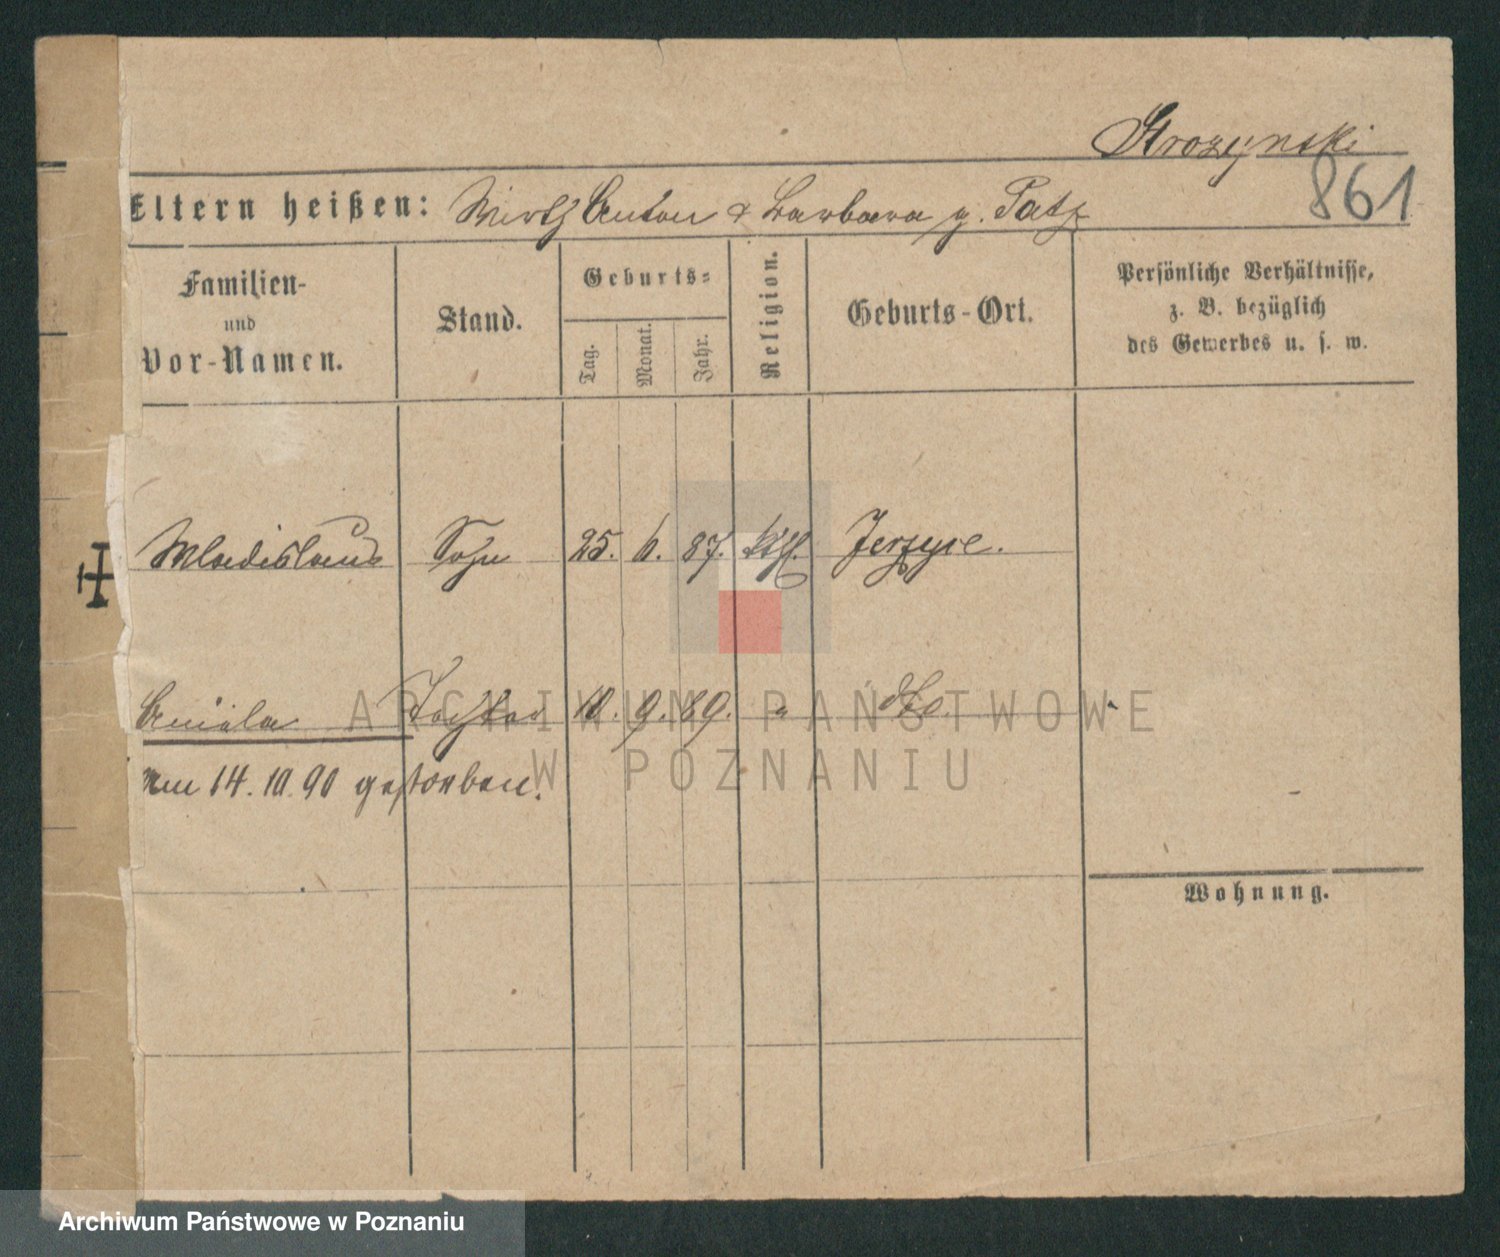 Strozynski
861
Eltern heißen: Wirth Anton & Barbara g. Patz
Familien-
und
Vor-Namen.
Stand.
Geburts-
Tag.
Monat.
Jahr.
Religion.
Geburts-Ort.
Persönliche Verhältnisse,
z. B. bezüglich
des Gewerbes u. s. w.
Wladislaus Sohn 25. 6. 87. kth. Jerzyce.
Aniela Tochter 10. 9. 89. " dto.
am 14.10.90 gestorben.
Wohnung.
ARCHIWUM PAŃSTWOWE
W POZNANIU
Archiwum Państwowe w Poznaniu